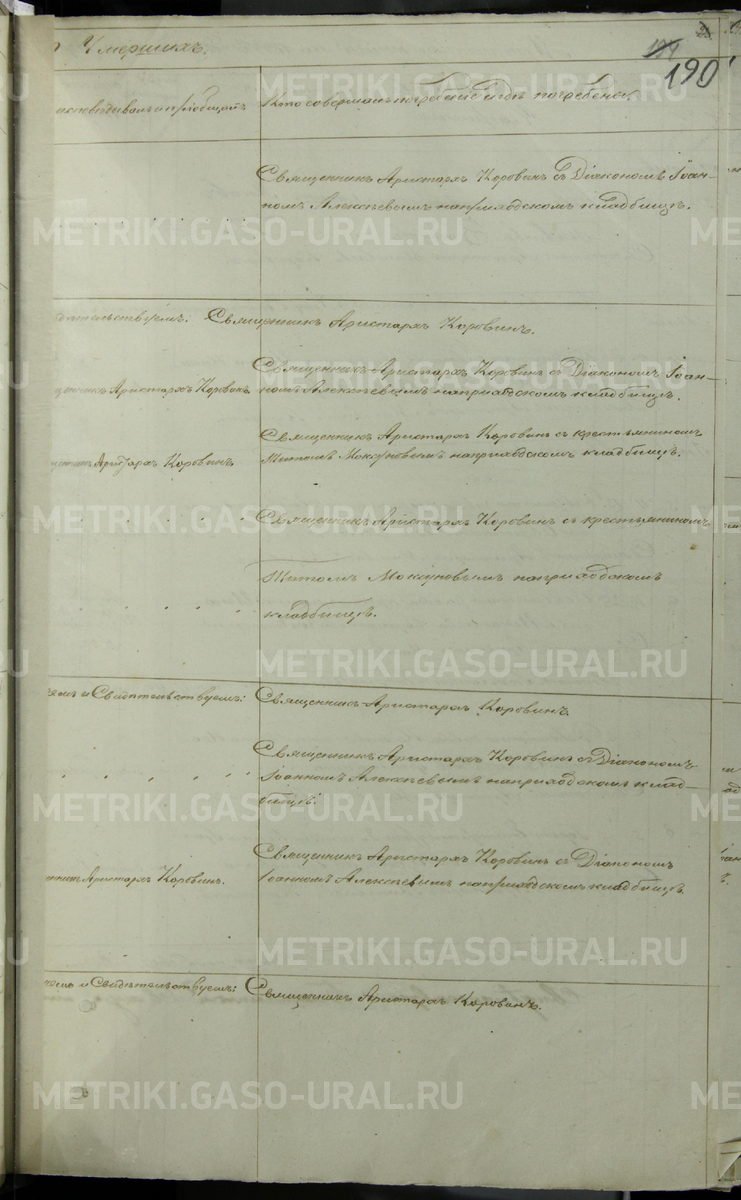 Умершихъ.
190
исповѣдывалъ и пріобщалъ
Кто совершалъ погребеніе и гдѣ погребены.
Священникъ Аристархъ Коровинъ съ Діакономъ Іоан-
номъ Алексѣевымъ на приходскомъ кладбищѣ.
дѣтельствуемъ: Священникъ Аристархъ Коровинъ.
щенникъ Аристархъ Коровинъ
Священникъ Аристархъ Коровинъ съ Діакономъ Іоан-
номъ Алексѣевымъ на приходскомъ кладбищѣ.
Аристархъ Коровинъ
Священникъ Аристархъ Коровинъ съ крестьяниномъ
на приходскомъ кладбищѣ.
Священникъ Аристархъ Коровинъ съ крестьяниномъ
на приходскомъ
кладбищѣ.
и Свидѣтельствуемъ: Священникъ Аристархъ Коровинъ.
Священникъ Аристархъ Коровинъ съ Діакономъ
Іоанномъ Алексѣевымъ на приходскомъ клад-
бищѣ.
енникъ Аристархъ Коровинъ.
Священникъ Аристархъ Коровинъ съ Діакономъ
Іоанномъ Алексѣевымъ на приходскомъ кладбищѣ.
и Свидѣтельствуемъ: Священникъ Аристархъ Коровинъ.
METRIKI.GASO-URAL.RU